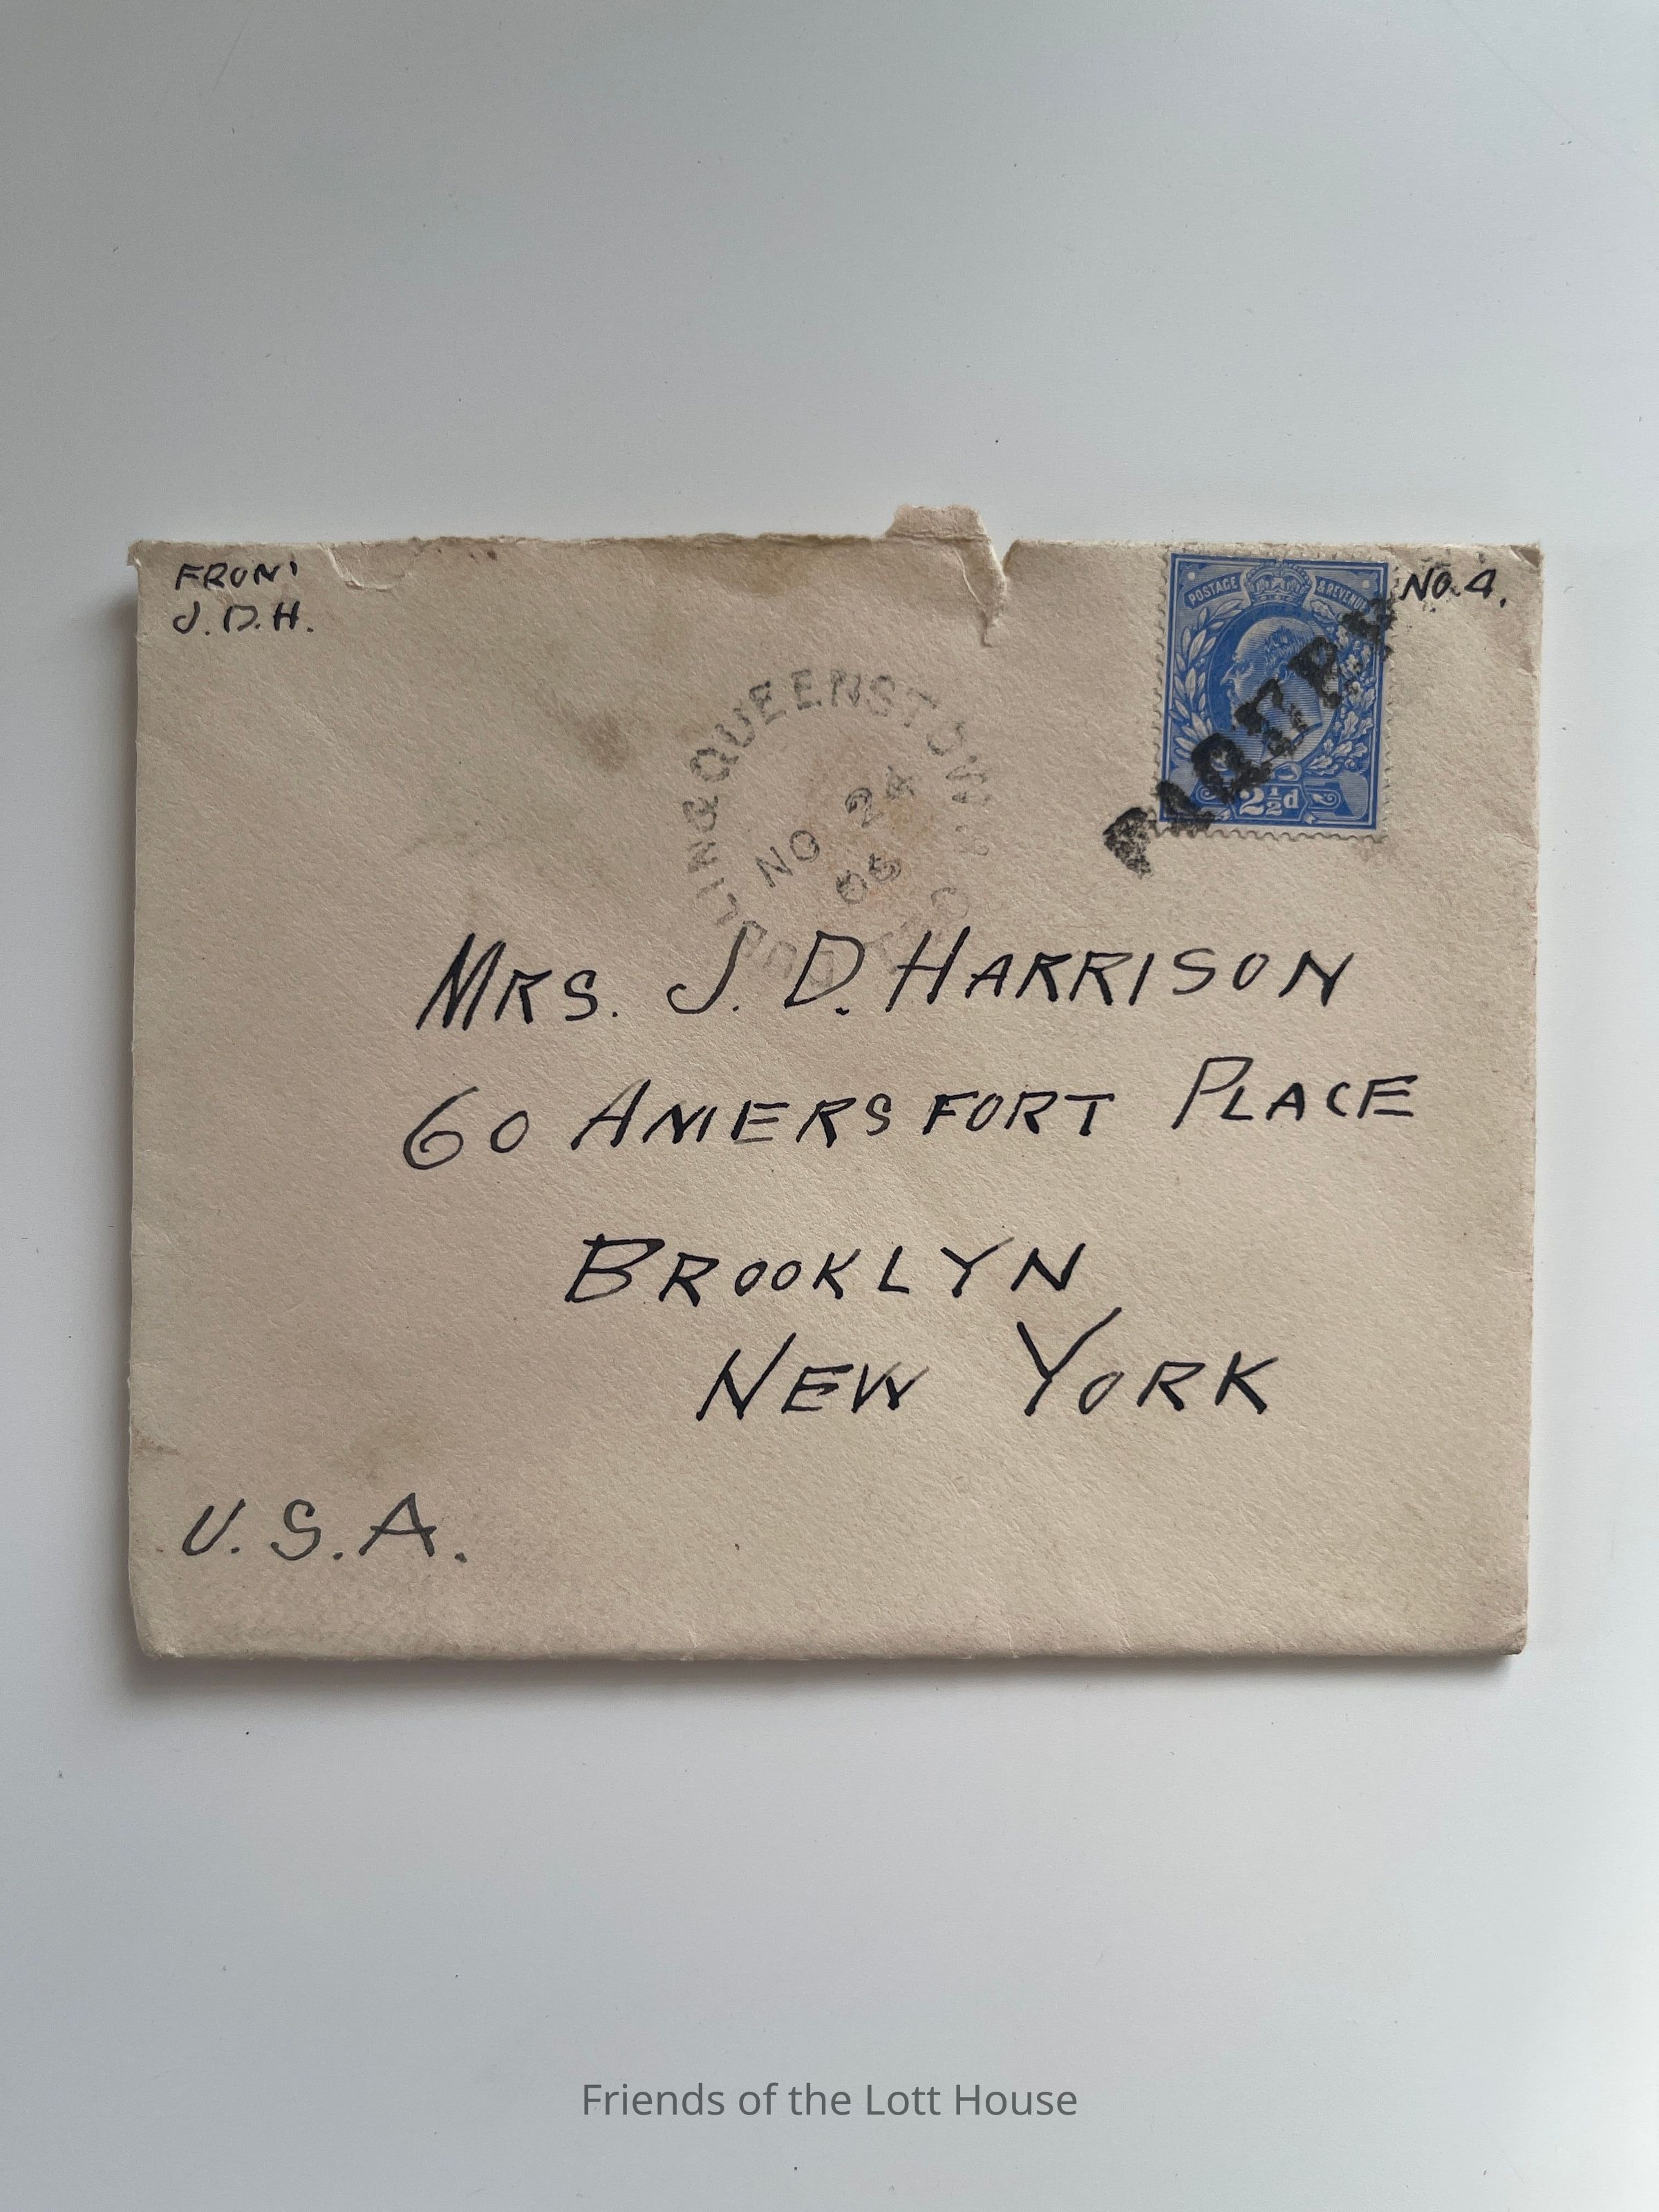 FROM
J.D.H.
NO. 4.
POSTAGE & REVENUE
2½d
PAQUEBO
DUBLIN & QUEENSTOWN
NO 24
05
MRS. J. D. HARRISON
60 AMERSFORT PLACE
BROOKLYN
NEW YORK
U.S.A.
Friends of the Lott House